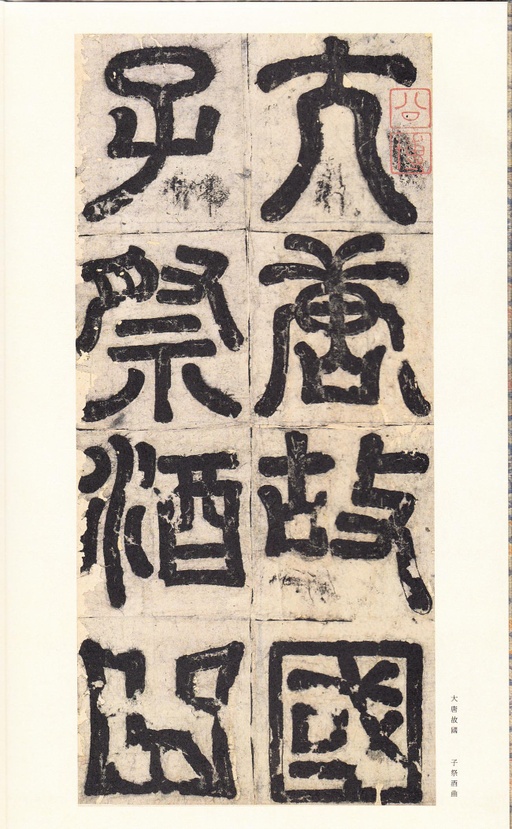 大唐故國
子祭酒曲
大唐故國 子祭酒曲